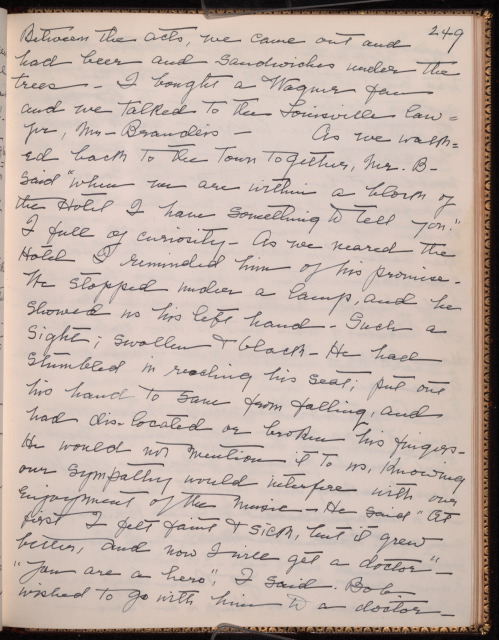 249
Between the acts, we came out and
had beer and sandwiches under the
trees - I bought a Wagner fan
and we talked to the Louisville law=
yer, Mr - Brandeis - As we walk=
ed back to the town together, Mr. B-
said "when we are within a block of
the Hotel I have something to tell you."
I full of curiosity - As we neared the
Hotel I reminded him of his promise -
He stopped under a lamp, and he
showed us his left hand - Such a
sight; swollen & black - He had
stumbled in reaching his seat; put out
his hand to save from falling, and
had dis-located or broken his fingers -
He would not mention it to us, knowing
our sympathy would interfere with our
enjoyment of the music - He said "At
first I felt faint & sick, but it grew
better, and now I will get a doctor" -
"You are a hero", I said. Bob
wished to go with him to a doctor -